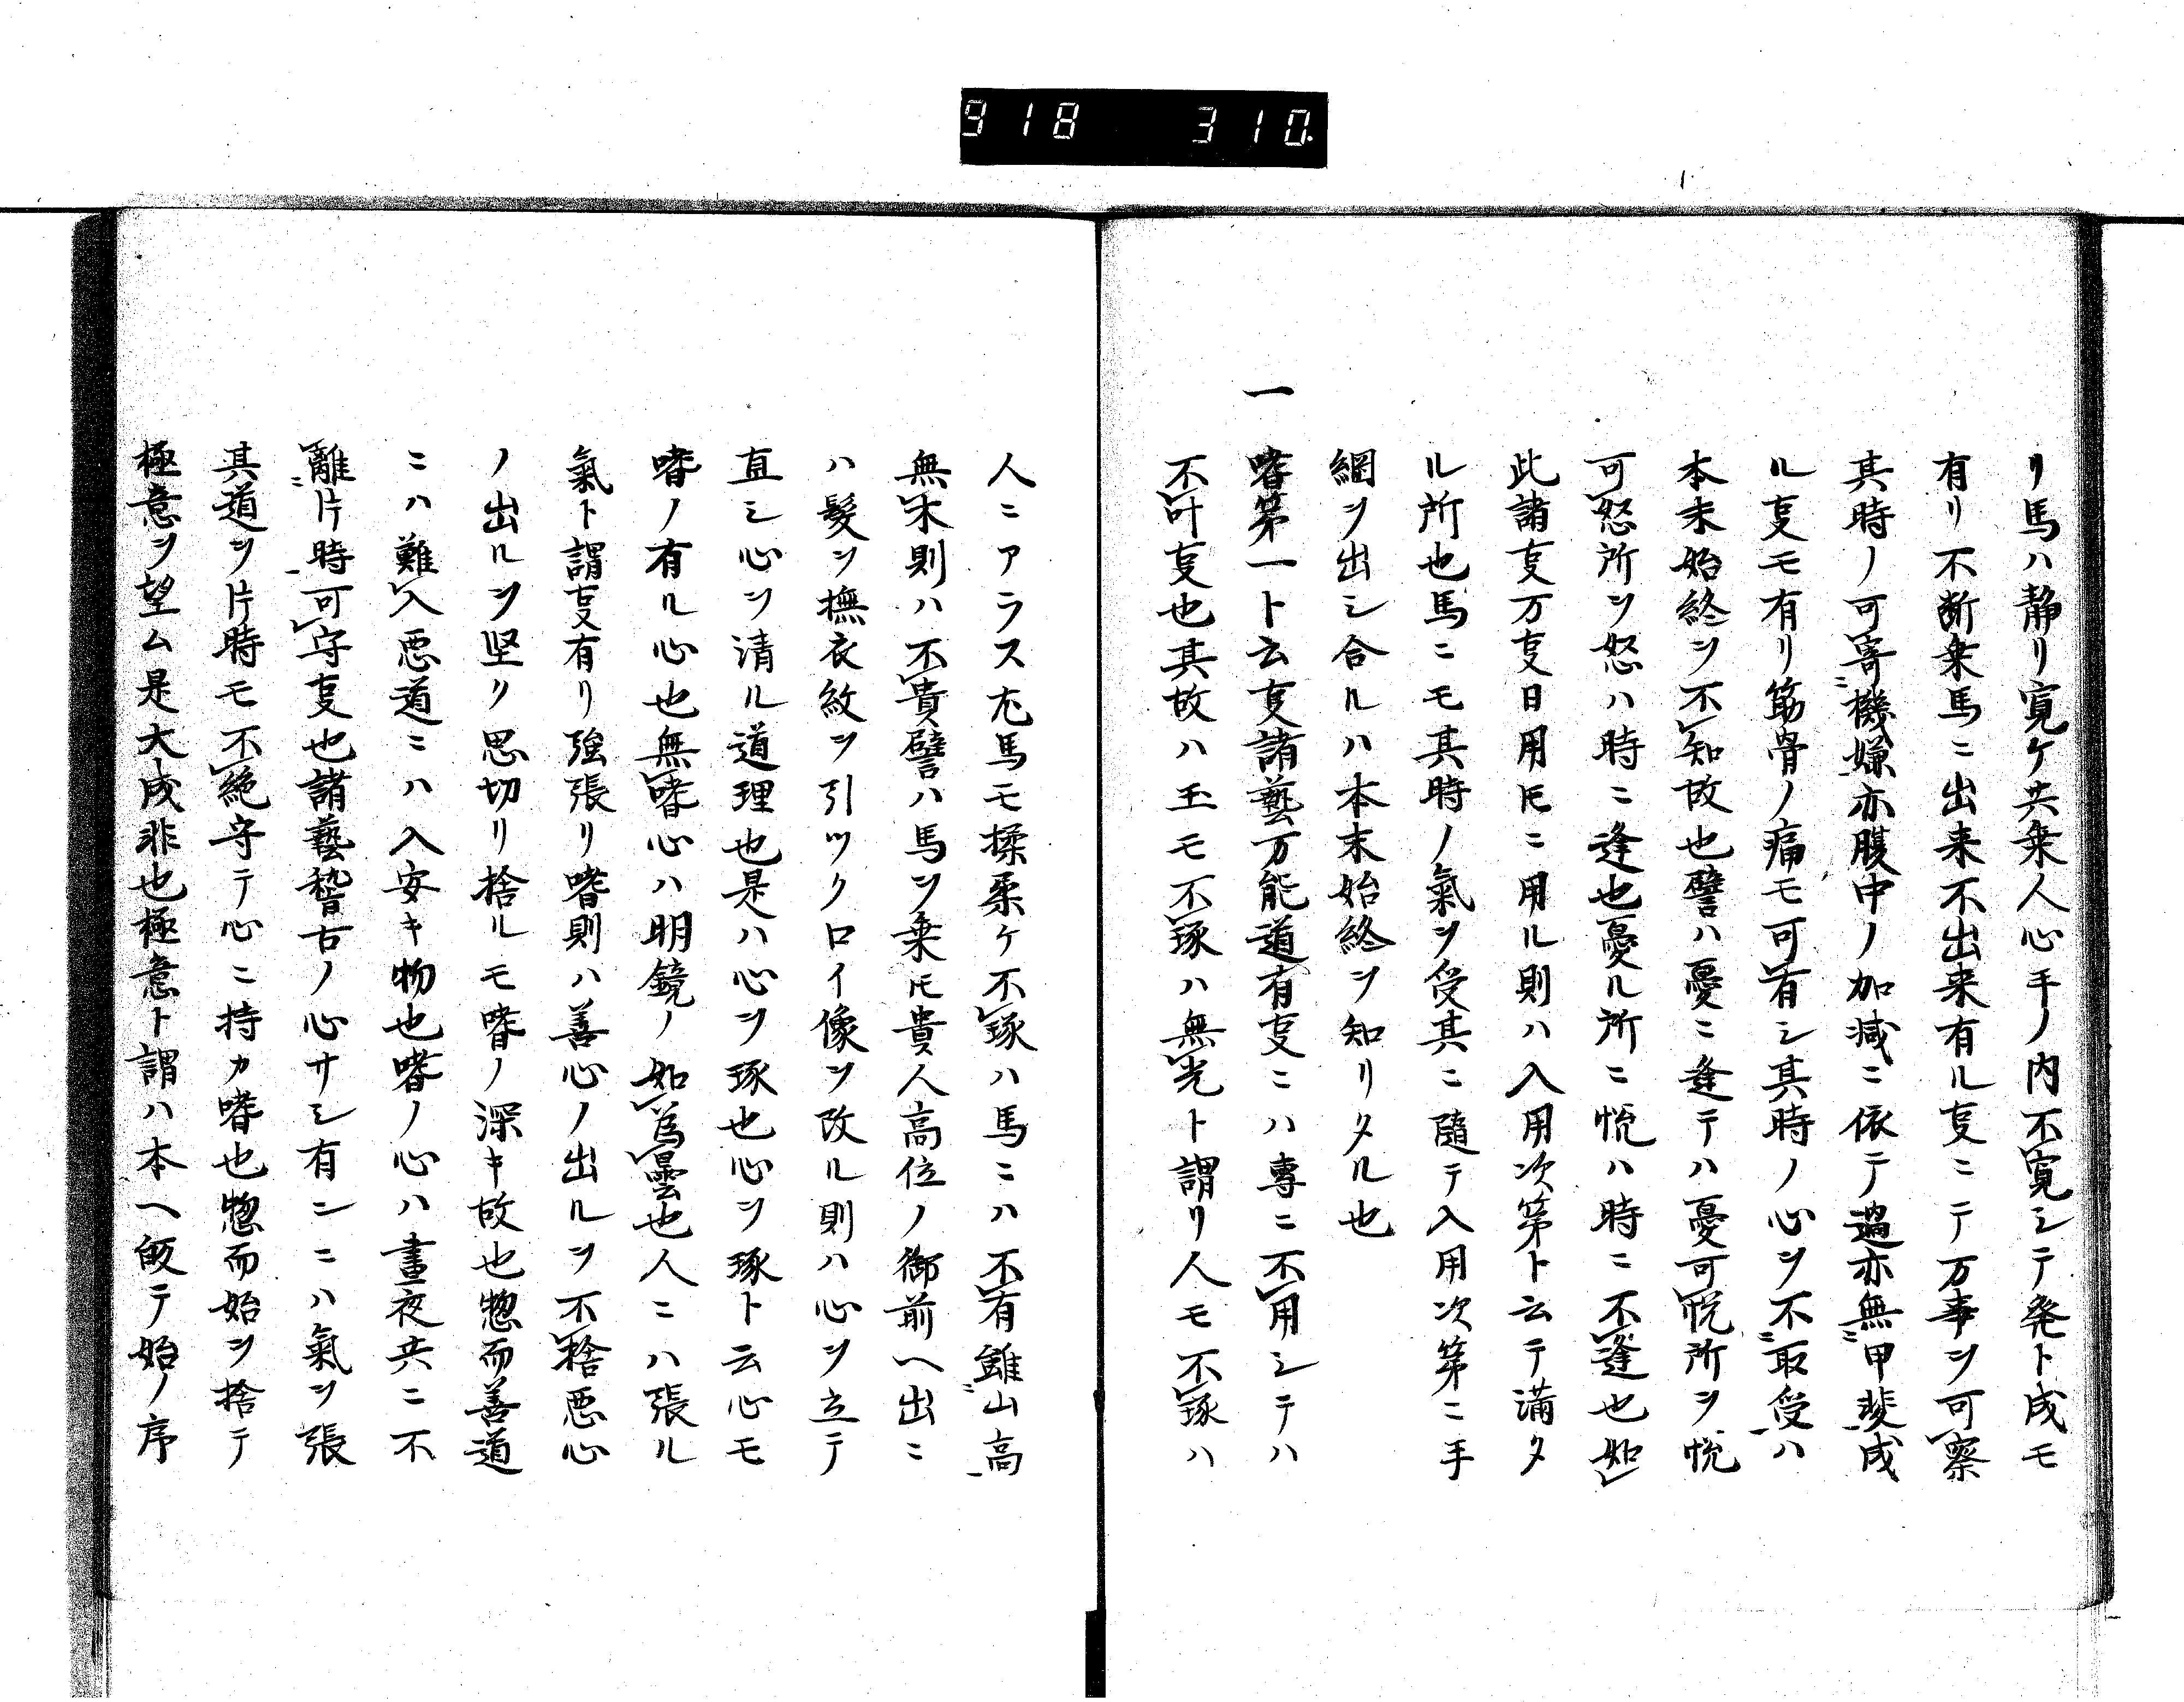 918 310
リ馬ハ静リ寛ケ共乗人心手ノ内不寛シテ発ト成モ
有リ不断乗馬ニ出来不出来有ル叓ニテ万事ヲ可察
其時ノ可寄機嫌亦腹中ノ加減ニ依テ過亦無甲斐成
ル叓モ有リ筋骨ノ痛モ可有シ其時ノ心ヲ不取受ハ
本末始終ヲ不知故也譬ハ憂ニ逢テハ憂可悦所ヲ悦
可怒所ヲ怒ハ時ニ逢也憂ル所ニ悦ハ時ニ不逢也如
此諸叓万叓日用𪜈ニ用ル則ハ入用次第ト云テ満タ
ル所也馬ニモ其時ノ氣ヲ受其ニ隨テ入用次第ニ手
綱ヲ出シ合ルハ本末始終ヲ知リタル也
一 嗜第一ト云叓諸藝万能道有叓ニハ專ニ不用シテハ
不叶叓也其故ハ玉モ不琢ハ無光ト謂リ人モ不琢ハ
人ニアラス尤馬モ揉柔ケ不琢ハ馬ニハ不有雖山高
無木則ハ不貴譬ハ馬ヲ乗𪜈貴人高位ノ御前ヘ出ニ
ハ髪ヲ撫衣紋ヲ引ツクロイ像ヲ改ル則ハ心ヲ立テ
直シ心ヲ清ル道理也是ハ心ヲ琢也心ヲ琢ト云心モ
嗜ノ有ル心也無嗜心ハ明鏡ノ如為曇也人ニハ張ル
氣ト謂叓有リ強張リ嗜則ハ善心ノ出ルヲ不捨悪心
ノ出ルヲ堅ク思切リ捨ルモ嗜ノ深キ故也惣而善道
ニハ難入悪道ニハ入安キ物也嗜ノ心ハ晝夜共ニ不
離片時可守叓也諸藝稽古ノ心サシ有ンニハ氣ヲ張
其道ヲ片時モ不絶守テ心ニ持カ嗜也惣而始ヲ捨テ
極意ヲ望ム是大成非也極意ト謂ハ本ヘ皈テ始ノ序